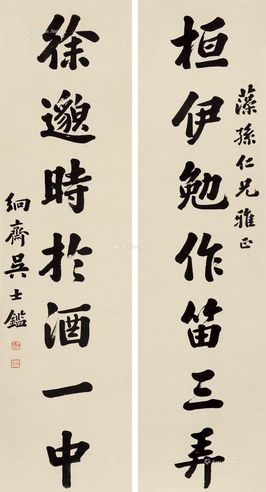 藻孫仁兄雅正
桓伊勉作笛三弄
徐邈時於酒一中
絅齋吳士鑑